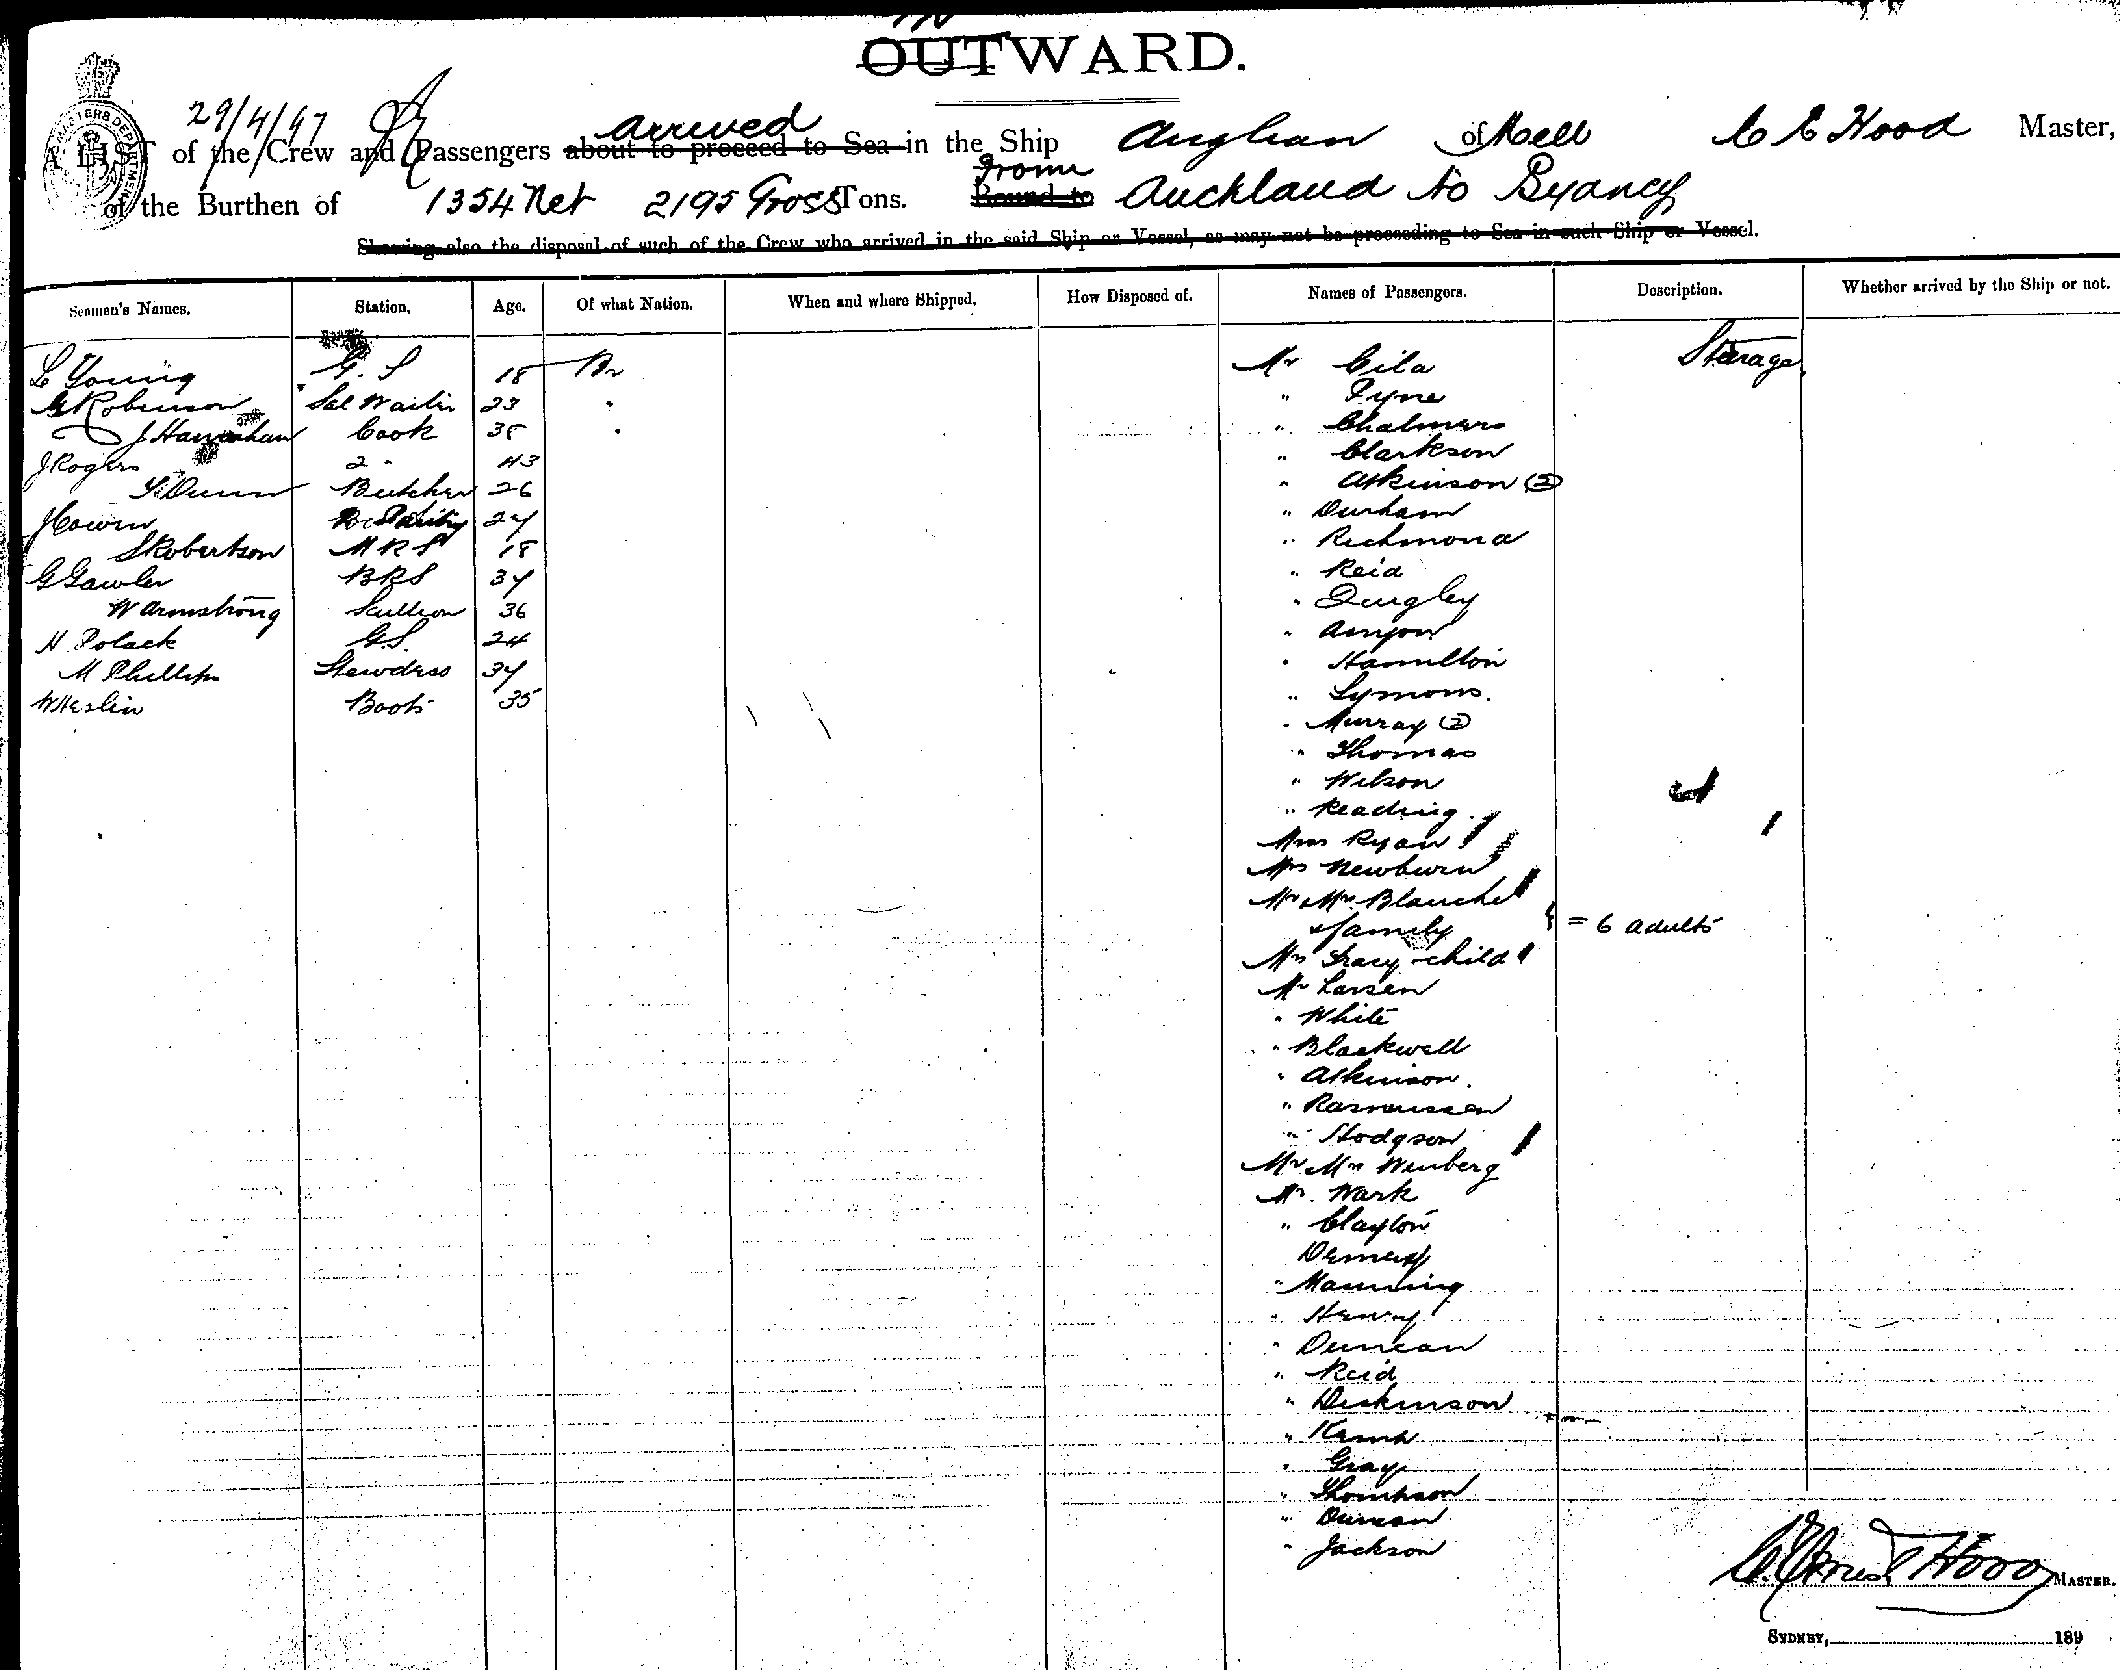 IN
OUTWARD.
29/4/97
A LIST of the Crew and Passengers about to proceed to Sea arrived in the Ship Anglian of Mell C E Hood Master,
of the Burthen of 1354 Net 2195 Gross Tons. Bound to From Auckland to Sydney
Showing also the disposal of such of the Crew who arrived in the said Ship or Vessel, as may not be proceeding to Sea in such Ship or Vessel.
Seamen's Names. Station. Age. Of what Nation. When and where Shipped. How Disposed of. Names of Passengers. Description. Whether arrived by the Ship or not.
L Young G. S 18 Br Mr Steerage
Robinson Sal Waiter 23 " " Fyne
J Hanrahan Cook 35 " " Chalmers
J Rogers 2 " 43 " Clarkson
Dunn Butcher 26 " Atkinson (2)
J Cowen Pantry 24 " Durham
S Robertson M R S 18 " Richmond
G Gawler B R S 34 " Reid
W Armstrong Scullion 36 " Quigley
H Polack G.S. 24 "
M Phillips Stewdess 34 " Hamilton
W Heslin Boots 35 " Symons.
" Murray (2)
" Thomas
" Wilson
" Reading
Mrs Ryan
Mrs Newburn
Mr Mrs Blanche
& family } = 6 adults
Mrs Tracy & child
Mr Larsen
" White
" Blackwell
" Atkinson.
" Rasmussen
" Hodgson
Mr Mrs Winberg
Mr. Wark
" Clayton
" Manning
" Henry
" Duncan
" Reid
" Dickinson
" Kemp
" Gray
" Thompson
" Duncan
" Jackson
C. Ernest Hood MASTER.
SYDNEY, 189